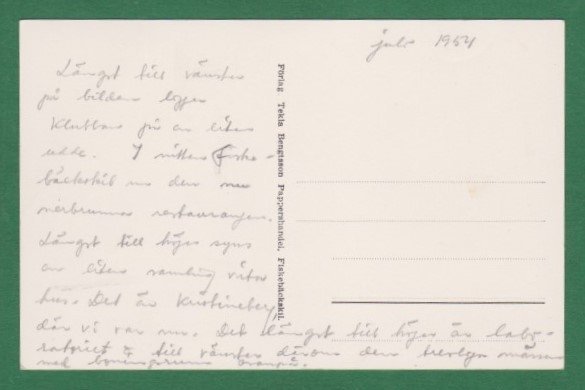 juli 1954
Längst till vänster
på bilden ligger
Klubban på en liten
udde. I mitten Fiske-
bäckskil med den nu
nerbrunna restaurangen.
Längst till höger syns
en liten samling vita
hus. Det är Kristineberg
där vi var nu. Det längst till höger är labo-
ratoriet & till vänster därom den trevliga mässen
med boningsrum ovanpå.
Förlag Tekla Bengtsson Pappershandel, Fiskebäckskil.